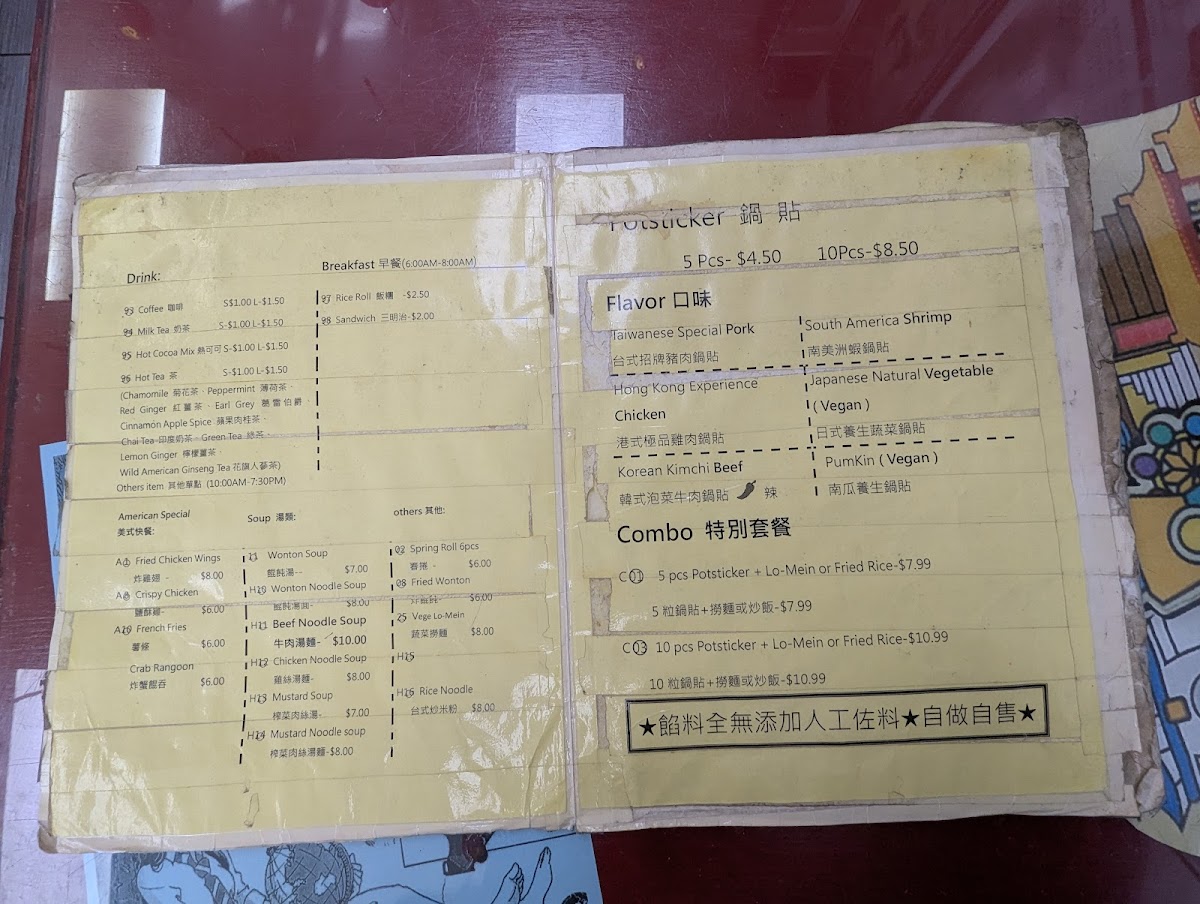 Drink:
93 Coffee 咖啡 S$1.00 L-$1.50
94 Milk Tea 奶茶 S-$1.00 L-$1.50
95 Hot Cocoa Mix 熱可可 S-$1.00 L-$1.50
96 Hot Tea 茶 S-$1.00 L-$1.50
(Chamomile 菊花茶、Peppermint 薄荷茶、
Red Ginger 紅薑茶、Earl Grey 葛雷伯爵、
Cinnamon Apple Spice 蘋果肉桂茶、
Chai Tea-印度奶茶、Green Tea 綠茶、
Lemon Ginger 檸檬薑茶、
Wild American Ginseng Tea 花旗人蔘茶)
Others item 其他單點 (10:00AM-7:30PM)
Breakfast 早餐(6:00AM-8:00AM)
97 Rice Roll 飯糰 -$2.50
98 Sandwich 三明治-$2.00
American Special
美式快餐:
Fried Chicken Wings
炸雞翅 - $8.00
Crispy Chicken
鹽酥雞- $6.00
A10 French Fries
薯條 $6.00
Crab Rangoon
炸蟹餛吞 $6.00
Soup 湯類:
11 Wonton Soup
餛飩湯-- $7.00
H10 Wonton Noodle Soup
餛飩湯麵- $8.00
H11 Beef Noodle Soup
牛肉湯麵- $10.00
H12 Chicken Noodle Soup
雞絲湯麵- $8.00
H13 Mustard Soup
榨菜肉絲湯- $7.00
H14 Mustard Noodle soup
榨菜肉絲湯麵-$8.00
others 其他:
02 Spring Roll 6pcs
春捲 - $6.00
08 Fried Wonton
炸餛飩 $6.00
25 Vege Lo-Mein
蔬菜撈麵 $8.00
H15
H16 Rice Noodle
台式炒米粉 $8.00
Potsticker 鍋 貼
5 Pcs- $4.50 10Pcs-$8.50
Flavor 口味
Taiwanese Special Pork
台式招牌豬肉鍋貼
South America Shrimp
南美洲蝦鍋貼
Hong Kong Experience
Chicken
港式極品雞肉鍋貼
Japanese Natural Vegetable
( Vegan )
日式養生蔬菜鍋貼
Korean Kimchi Beef
韓式泡菜牛肉鍋貼 辣
PumKin ( Vegan )
南瓜養生鍋貼
Combo 特別套餐
C 01 5 pcs Potsticker + Lo-Mein or Fried Rice-$7.99
5 粒鍋貼+撈麵或炒飯-$7.99
C 03 10 pcs Potsticker + Lo-Mein or Fried Rice-$10.99
10 粒鍋貼+撈麵或炒飯-$10.99
★餡料全無添加人工佐料★自做自售★